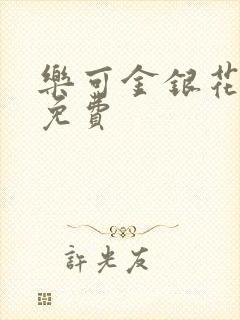 樂可金銀花
免費
許光友